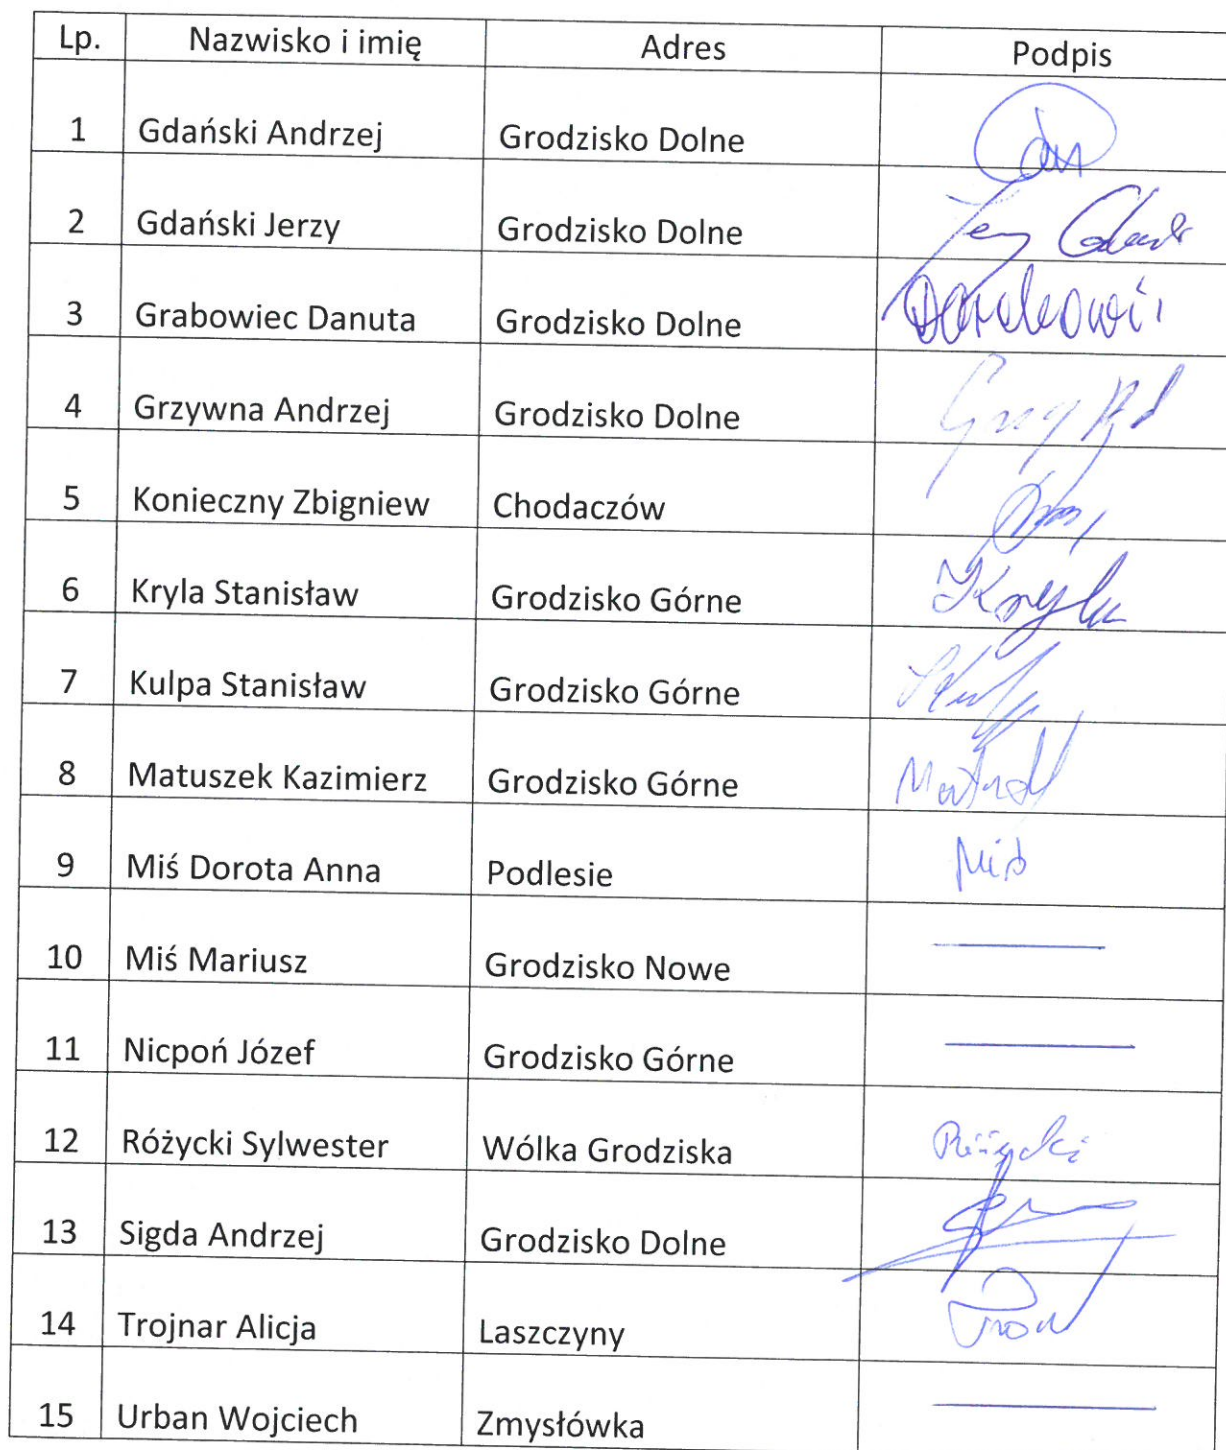 Lp. Nazwisko i imię Adres Podpis
1 Gdański Andrzej Grodzisko Dolne
2 Gdański Jerzy Grodzisko Dolne
3 Grabowiec Danuta Grodzisko Dolne
4 Grzywna Andrzej Grodzisko Dolne
5 Konieczny Zbigniew Chodaczów
6 Kryla Stanisław Grodzisko Górne Kryla
7 Kulpa Stanisław Grodzisko Górne
8 Matuszek Kazimierz Grodzisko Górne
9 Miś Dorota Anna Podlesie Miś
10 Miś Mariusz Grodzisko Nowe
11 Nicpoń Józef Grodzisko Górne
12 Różycki Sylwester Wólka Grodziska Różycki
13 Sigda Andrzej Grodzisko Dolne
14 Trojnar Alicja Laszczyny
15 Urban Wojciech Zmysłówka